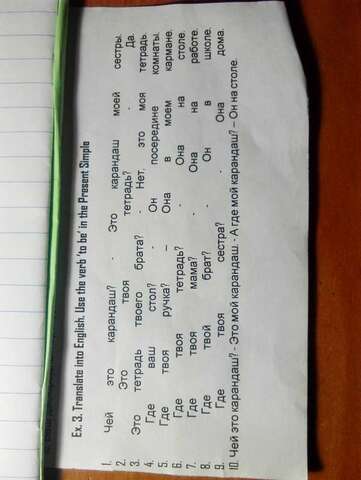 Ex. 3. Translate into English. Use the verb 'to be' in the Present Simple
1. Чей это карандаш? - Это карандаш моей сестры.
2. Это твоя тетрадь? - Да.
3. Это тетрадь твоего брата? - Нет, это моя тетрадь.
4. Где ваш стол? - Он посередине комнаты.
5. Где твоя ручка? – Она в моем кармане.
6. Где твоя тетрадь? - Она на столе.
7. Где твоя мама? - Она на работе.
8. Где твой брат? - Он в школе.
9. Где твоя сестра? - Она дома.
10. Чей это карандаш? - Это мой карандаш - А где мой карандаш? – Он на столе.